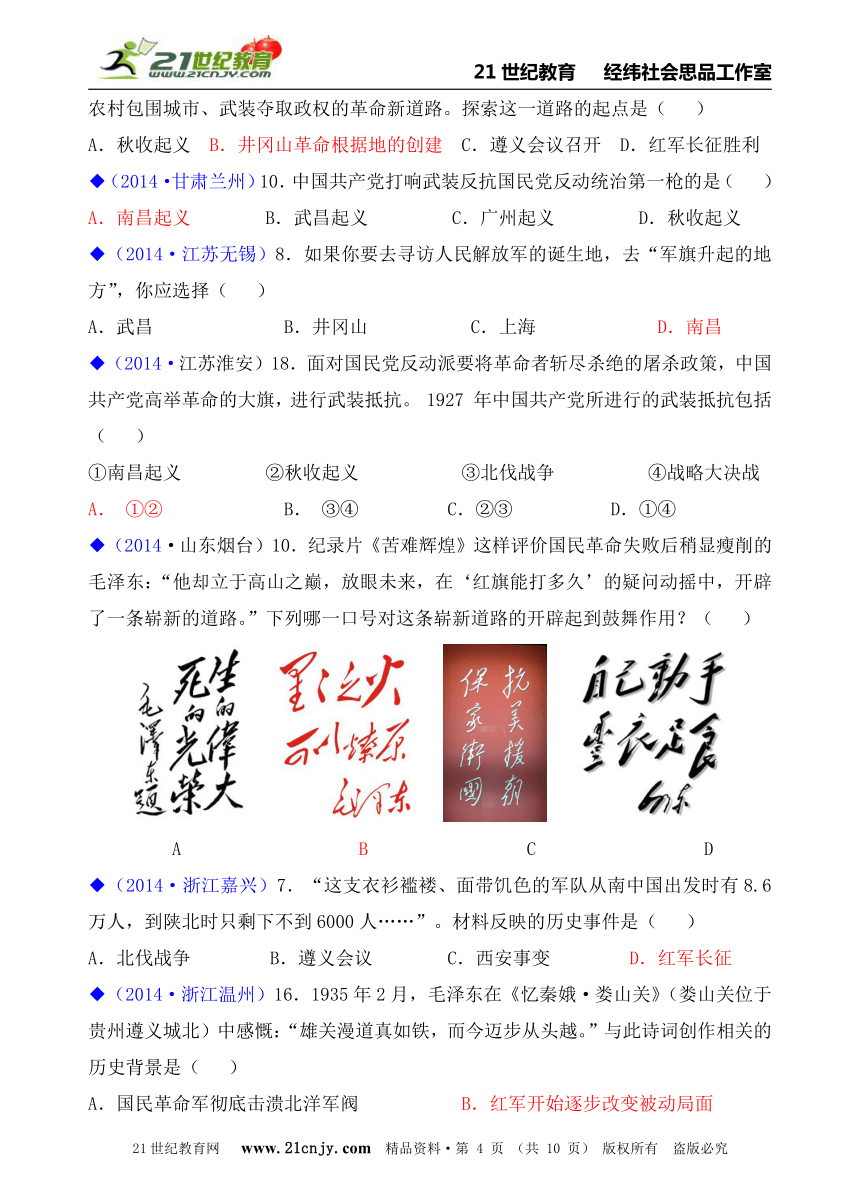 21世纪教育
www.21cnjy.com
21世纪教育 经纬社会思品工作室
农村包围城市、武装夺取政权的革命新道路。探索这一道路的起点是( )
A．秋收起义 B．井冈山革命根据地的创建 C．遵义会议召开 D．红军长征胜利
◆(2014·甘肃兰州)10．中国共产党打响武装反抗国民党反动统治第一枪的是( )
A．南昌起义 B．武昌起义 C．广州起义 D．秋收起义
◆(2014·江苏无锡)8．如果你要去寻访人民解放军的诞生地，去“军旗升起的地
方”，你应选择( )
A．武昌 B．井冈山 C．上海 D．南昌
◆(2014·江苏淮安)18．面对国民党反动派要将革命者斩尽杀绝的屠杀政策，中国
共产党高举革命的大旗，进行武装抵抗。 1927 年中国共产党所进行的武装抵抗包括
( )
①南昌起义 ②秋收起义 ③北伐战争 ④战略大决战
A． ①② B． ③④ C．②③ D．①④
◆(2014·山东烟台)10．纪录片《苦难辉煌》这样评价国民革命失败后稍显瘦削的
毛泽东：“他却立于高山之巅，放眼未来，在‘红旗能打多久’的疑问动摇中，开辟
了一条崭新的道路。”下列哪一口号对这条崭新道路的开辟起到鼓舞作用？( )
生的偉大
死的光榮
毛澤東題
星星之火
可以燎原
毛泽东
抗美援朝
保家衛國
自己動手
豐衣足食
毛泽东
A B C D
◆(2014·浙江嘉兴)7．“这支衣衫褴褛、面带饥色的军队从南中国出发时有8.6
万人，到陕北时只剩下不到6000人……”。材料反映的历史事件是( )
A．北伐战争 B．遵义会议 C．西安事变 D．红军长征
◆(2014·浙江温州)16．1935年2月，毛泽东在《忆秦娥·娄山关》(娄山关位于
贵州遵义城北)中感慨：“雄关漫道真如铁，而今迈步从头越。”与此诗词创作相关的
历史背景是( )
A．国民革命军彻底击溃北洋军阀 B．红军开始逐步改变被动局面
21世纪教育网 www.21cnjy.com 精品资料·第 4 页 （共 10 页） 版权所有 盗版必究